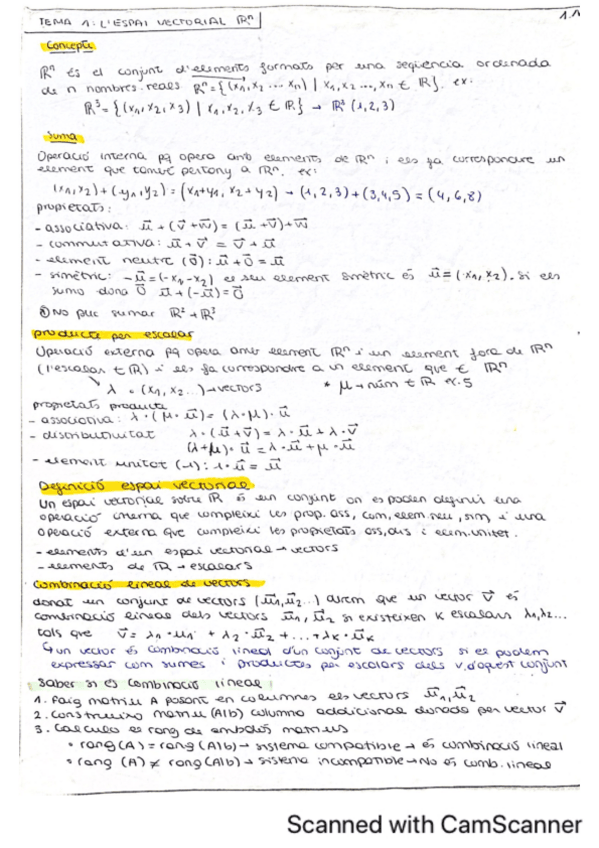 TEMA 1: L'ESPAI VECTORIAL ℝⁿ
1.1
Concepte
ℝⁿ és el conjunt d'elements formats per una seqüencia ordenada
de n nombres reals ℝⁿ={(x₁,x₂...xₙ) | x₁,x₂...,xₙ ∈ ℝ}. ex:
ℝ³={(x₁,x₂,x₃) | x₁,x₂,x₃ ∈ ℝ} → ℝ³ (1,2,3)
Suma
Operació interna pq opera amb elements de ℝⁿ i els fa correspondre un
element que també pertany a ℝⁿ. ex:
(x₁,x₂)+(y₁,y₂)=(x₁+y₁, x₂+y₂) → (1,2,3)+(3,4,5)=(4,6,8)
propietats:
- associativa: u⃗+(v⃗+w⃗)=(u⃗+v⃗)+w⃗
- commutativa: u⃗+v⃗ = v⃗+u⃗
- element neutre (0⃗): u⃗+0⃗=u⃗
- simètric: -u⃗=(-x₁-x₂) el seu element simètric és u⃗=(-x₁,x₂). si els
sumo dona 0⃗ u⃗+(-u⃗)=0⃗
No puc sumar ℝ²+ℝ³
producte per escalar
Operació externa pq opera amb element ℝⁿ i un element fora de ℝⁿ
(l'escalar ∈ ℝ) i els fa correspondre a un element que ∈ ℝⁿ
λ · (x₁,x₂...)→vectors * μ→núm ∈ ℝ ex.5
propietats producte
- associativa: λ·(μ·u⃗)=(λ·μ)·u⃗
- distributivitat λ·(u⃗+v⃗)=λ·u⃗+λ·v⃗
(λ+μ)·u⃗=λ·u⃗+μ·u⃗
- element unitat (1): 1·u⃗=u⃗
Definició espai vectorial
Un espai vectorial sobre ℝ és un conjunt on es poden definir una
operació interna que compleixi les prop. ass, com, elem.neu, sim i una
operació externa que compleixi les propietats ass, dis i elem.unitat.
- elements d'un espai vectorial → vectors
- elements de ℝ → escalars
Combinació lineal de vectors
donat un conjunt de vectors (u⃗₁,u⃗₂...) direm que un vector v⃗ és
combinació lineal dels vectors u⃗₁, u⃗₂ si existeixen K escalars λ₁,λ₂...
tals que v⃗=λ₁·u⃗₁+λ₂·u⃗₂+...+λₖ·u⃗ₖ
↳ un vector és combinació lineal d'un conjunt de vectors si el podem
expressar com sumes i productes per escalars dels v. d'aquest conjunt
Saber si és combinació lineal:
1. Faig matriu A posant en columnes els vectors u⃗₁,u⃗₂
2. Construeixo matriu (A|b) columna addicional donada per vector v⃗
3. Calculo el rang de ambdós matrius
• rang(A)=rang(A|b)→sistema compatible→és combinació lineal
• rang (A) ≠ rang(A|b)→sistema incompatible→No és comb. lineal
Scanned with CamScanner